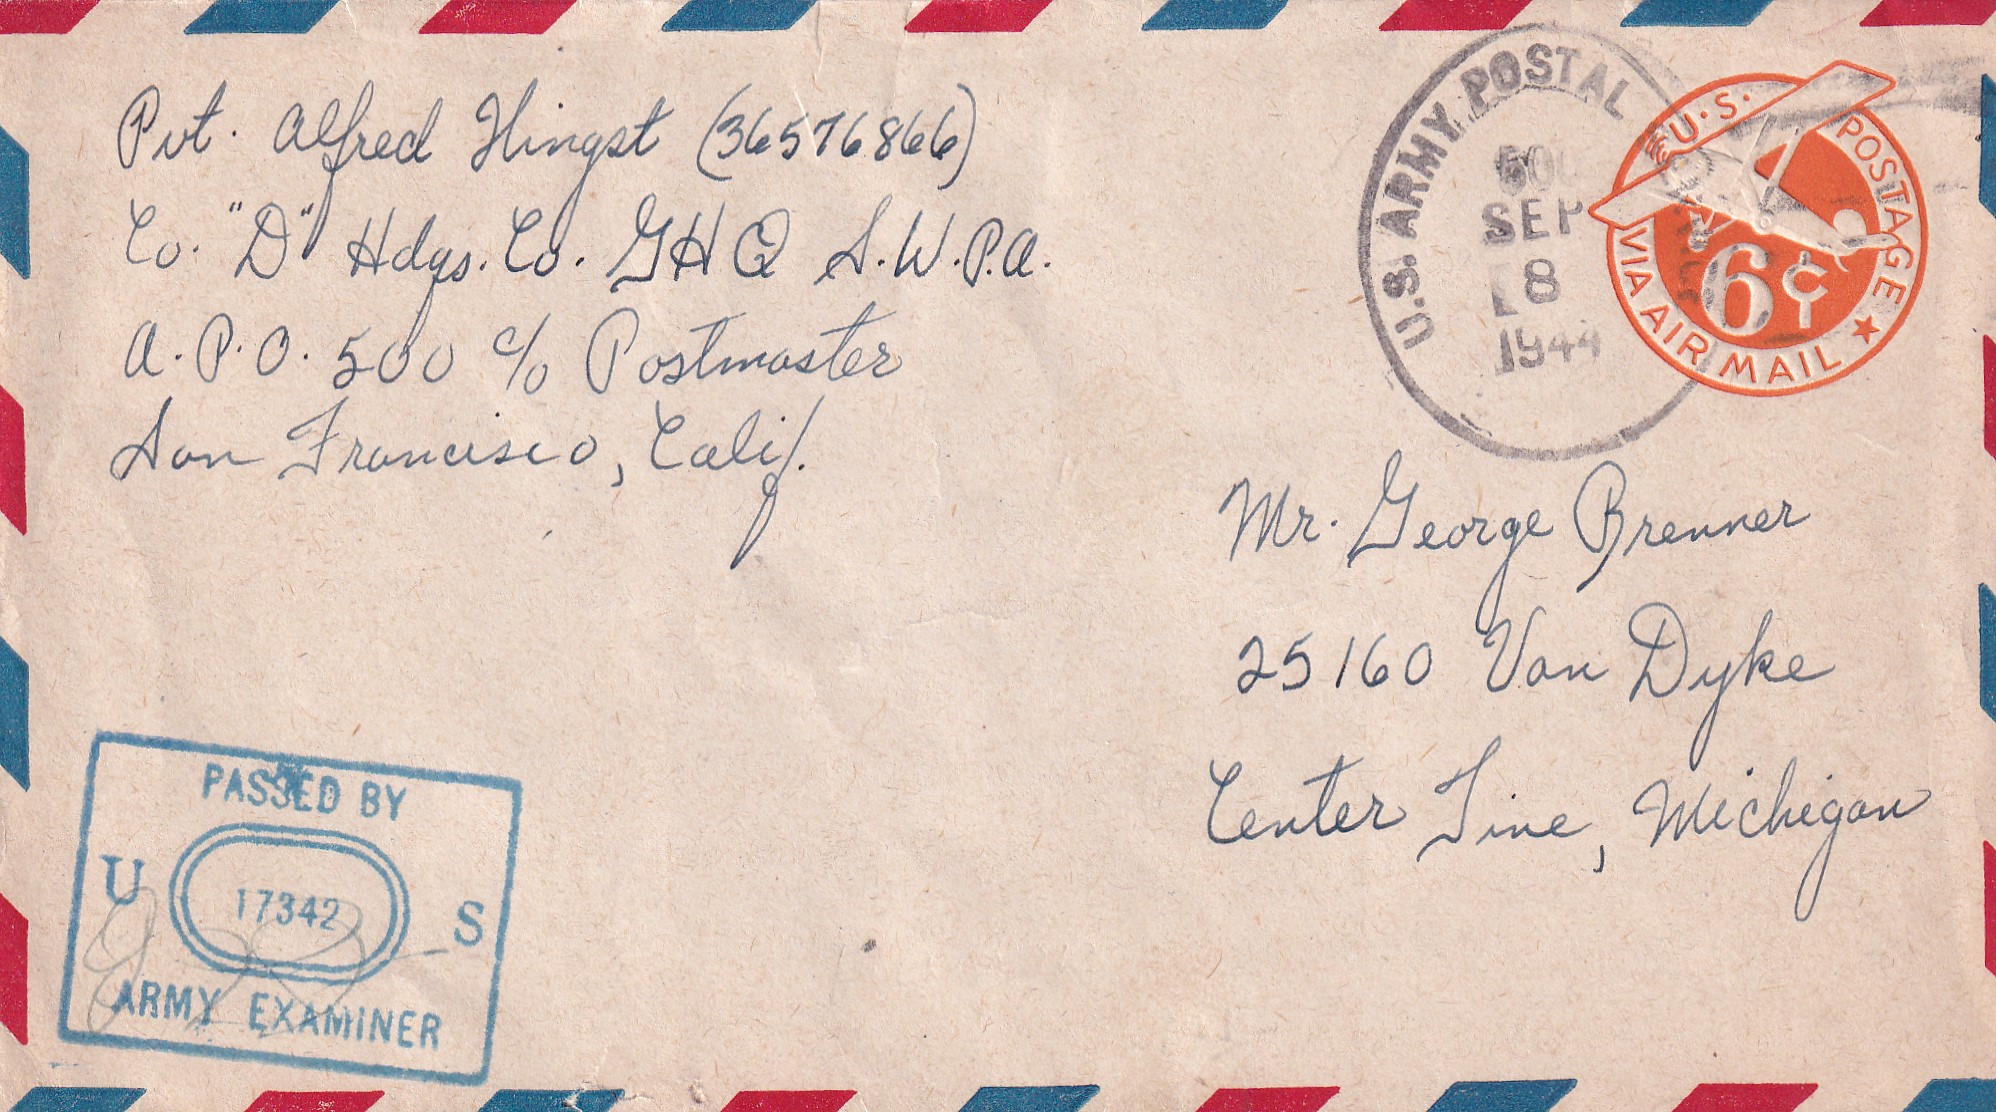 Pvt. Alfred Hingst (36576866)
Co. "D" Hdqs. Co. GHQ S.W.P.A.
A.P.O. 500 c/o Postmaster
San Francisco, Calif.
U.S. ARMY POSTAL
500
SEP
8
1944
U.S. POSTAGE
6¢
VIA AIR MAIL
Mr. George Brenner
25160 Van Dyke
Center Line, Michigan
PASSED BY
U 17342 S
ARMY EXAMINER